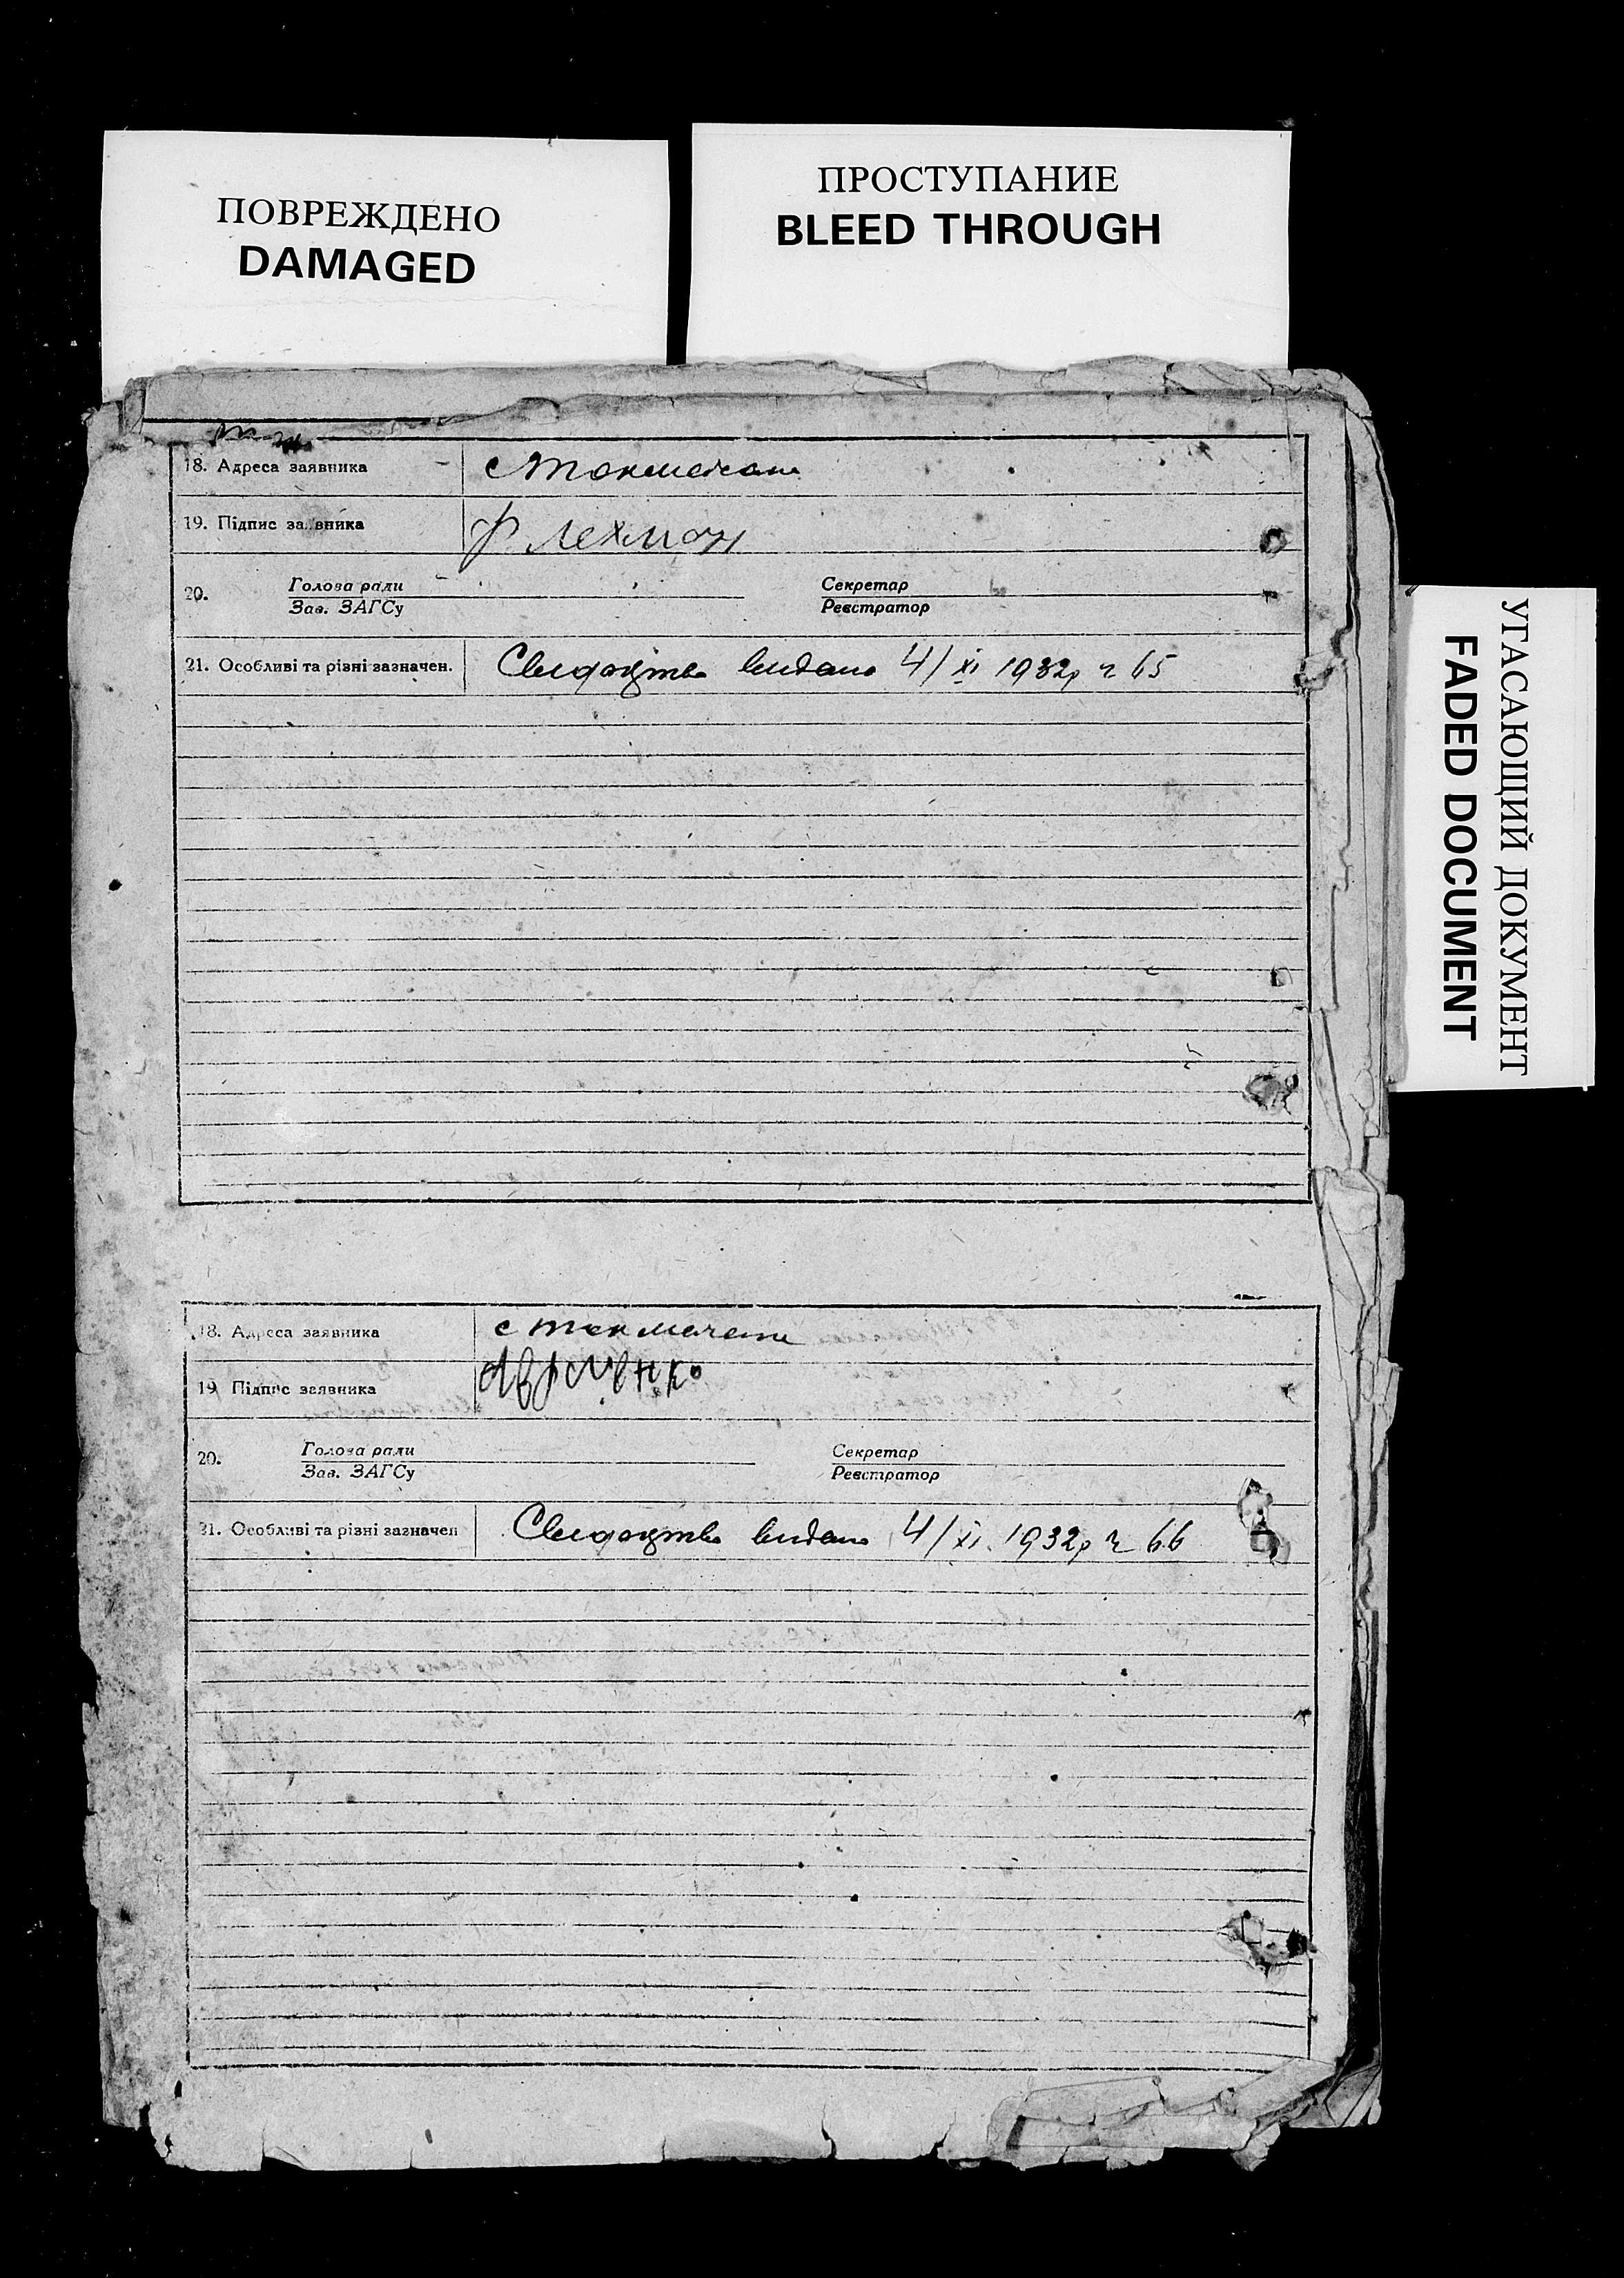 ПОВРЕЖДЕНО
DAMAGED
ПРОСТУПАНИЕ
BLEED THROUGH
УГАСАЮЩИЙ ДОКУМЕНТ
FADED DOCUMENT
18. Адреса заявника
19. Підпис заявника Ф Лехман
20. Голова ради Секретар
Зав. ЗАГСу Реєстратор
21. Особливі та різні зазначен. Свидоцтво видано 4/XI 1932р ч 65
18. Адреса заявника с
19 Підпис заявника Авраменко
20. Голова ради Секретар
Зав. ЗАГСу Реєстратор
21. Особливі та різні зазначен Свидоцтво видано 4/XI. 1932р ч 66